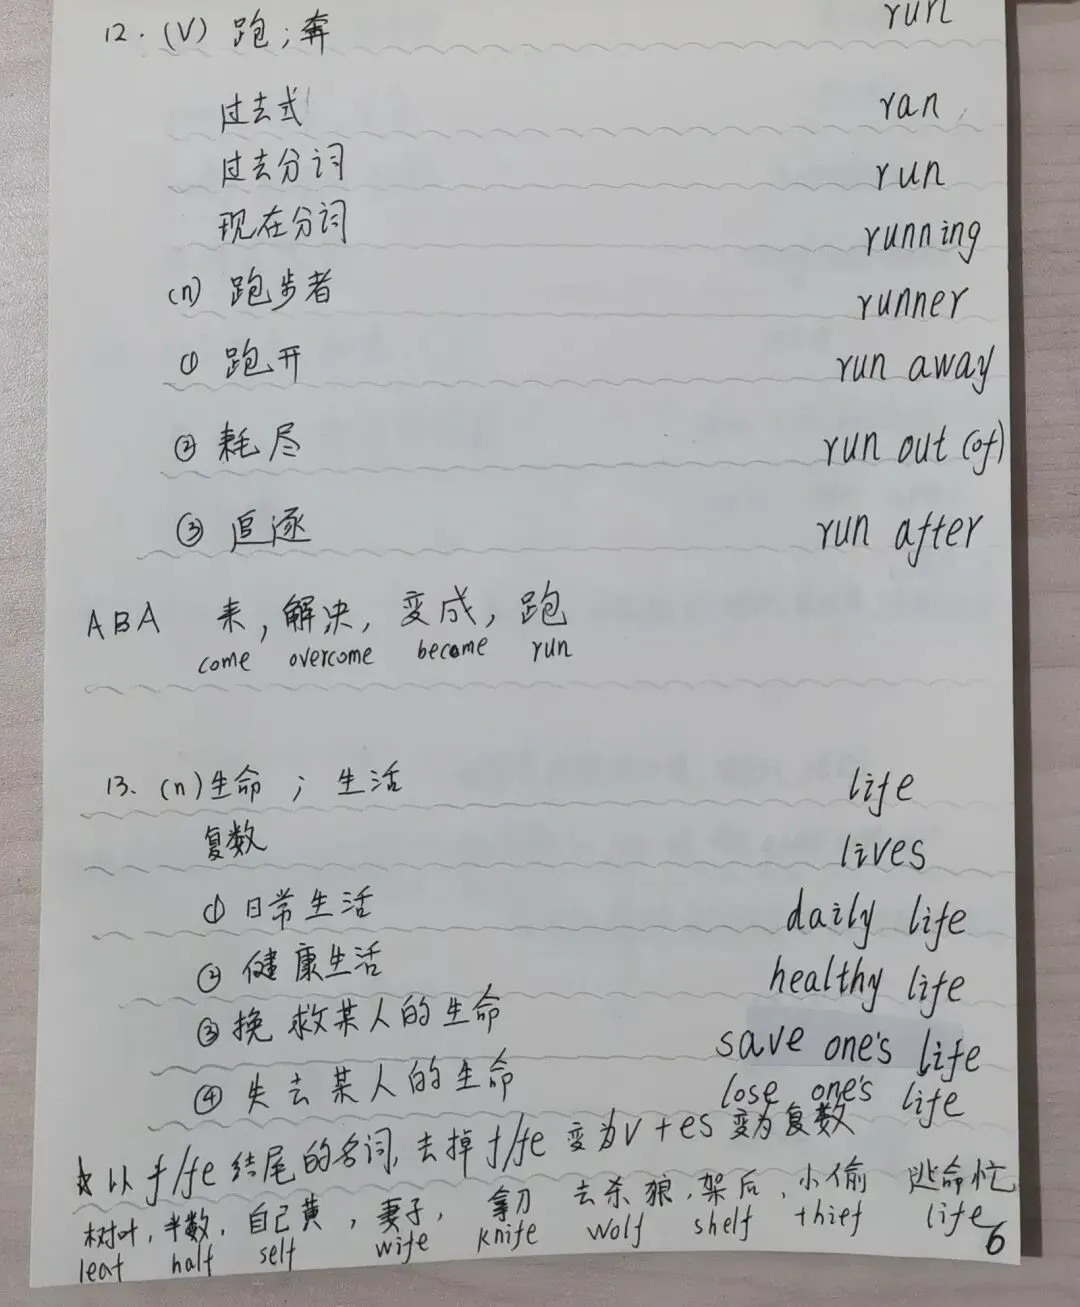 12. (V) 跑；奔 run
过去式 ran
过去分词 run
现在分词 running
(n) 跑步者 runner
① 跑开 run away
② 耗尽 run out (of)
③ 追逐 run after
ABA 来，解决，变成，跑
come overcome become run
13. (n)生命；生活 life
复数 lives
① 日常生活 daily life
② 健康生活 healthy life
③ 挽救某人的生命 save one's life
④ 失去某人的生命 lose one's life
☆ 以 f/fe 结尾的名词，去掉 f/fe 变为 v + es 变为复数
树叶，半数，自己黄，妻子，拿刀 去杀狼，架后，小偷 逃命忙
leaf half self wife knife wolf shelf thief life
6